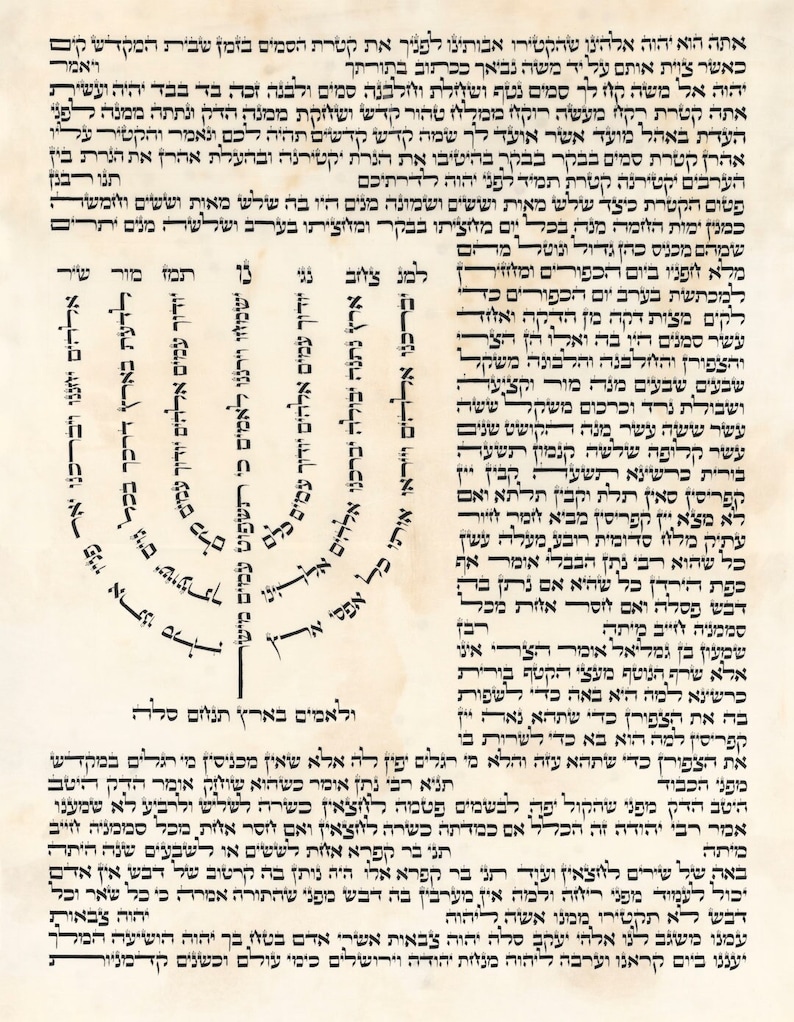 אתה הוא יהוה אלהינו שהקטירו אבותינו לפניך את קטרת הסמים בזמן שבית המקדש קים
כאשר צוית אותם על יד משה נביאך ככתוב בתורתך ויאמר
יהוה אל משה קח לך סמים נטף ושחלת וחלבנה סמים ולבנה זכה בד בבד יהיה ועשית
אתה קטרת רקח מעשה רוקח ממלח טהור קדש ושחקת ממנה הדק ונתתה ממנה לפני
העדת באהל מועד אשר אועד לך שמה קדש קדשים תהיה לכם ונאמר והקטיר עליו
אהרן קטרת סמים בבקר בבקר בהיטיבו את הנרת יקטירנה ובהעלת אהרן את הנרת בין
הערבים יקטירנה קטרת תמיד לפני יהוה לדרתיכם תנו רבנן
פטום הקטרת כיצד שלש מאות וששים ושמונה מנים היו בה שלש מאות וששים וחמשה
כמנין ימות החמה מנה בכל יום מחציתו בבקר ומחציתו בערב ושלשה מנים יתרים
שמהם מכניס כהן גדול ונוטל מהם
מלא חפניו ביום הכפורים ומחזירן
למכתשת בערב יום הכפורים כדי
לקים מצות דקה מן הדקה ואחד
עשר סמנים היו בה ואלו הן הצרי
והצפורן והחלבנה והלבונה משקל
שבעים שבעים מנה מור וקציעה
ושבולת נרד וכרכום משקל ששה
עשר ששה עשר מנה הקושט שנים
עשר קלופה שלשה קנמון תשעה
בורית כרשינא תשעה קבין יין
קפריסין סאין תלת וקבין תלתא ואם
לא מצא יין קפריסין מביא חמר חיור
עתיק מלח סדומית רובע מעלה עשן
כל שהוא רבי נתן הבבלי אומר אף
כפת הירדן כל שהיא אם נתן בה
דבש פסלה ואם חסר אחת מכל
סממניה חייב מיתה רבן
שמעון בן גמליאל אומר הצרי אינו
אלא שרף הנוטף מעצי הקטף בורית
כרשינא למה היא באה כדי לשפות
בה את הצפורן כדי שתהא נאה יין
קפריסין למה הוא בא כדי לשרות בו
למנ צחב נגי נו תמז מור שיר
אלהים יחננו ויברכנו יאר פניו אתנו סלה
לדעת בארץ דרכך בכל גוים ישועתך
יודוך עמים אלהים יודוך עמים כלם
ישמחו וירננו לאמים כי תשפוט עמים מישר
ולאמים בארץ תנחם סלה
יודוך עמים אלהים יודוך עמים כלם
ארץ נתנה יבולה יברכנו אלהים אלהינו
יברכנו אלהים וייראו אותו כל אפסי ארץ
את הצפורן כדי שתהא עזה והלא מי רגלים יפין לה אלא שאין מכניסין מי רגלים במקדש
מפני הכבוד תניא רבי נתן אומר כשהוא שוחק אומר הדק היטב
היטב הדק מפני שהקול יפה לבשמים פטמה לחצאין כשרה לשליש ולרביע לא שמענו
אמר רבי יהודה זה הכלל אם כמדתה כשרה לחצאין ואם חסר אחת מכל סממניה חייב
מיתה תני בר קפרא אחת לששים או לשבעים שנה היתה
באה של שירים לחצאין ועוד תני בר קפרא אלו היה נותן בה קרטוב של דבש אין אדם
יכול לעמוד מפני ריחה ולמה אין מערבין בה דבש מפני שהתורה אמרה כי כל שאר וכל
דבש לא תקטירו ממנו אשה ליהוה יהוה צבאות
עמנו משגב לנו אלהי יעקב סלה יהוה צבאות אשרי אדם בטח בך יהוה הושיעה המלך
יעננו ביום קראנו וערבה ליהוה מנחת יהודה וירושלים כימי עולם וכשנים קדמניות